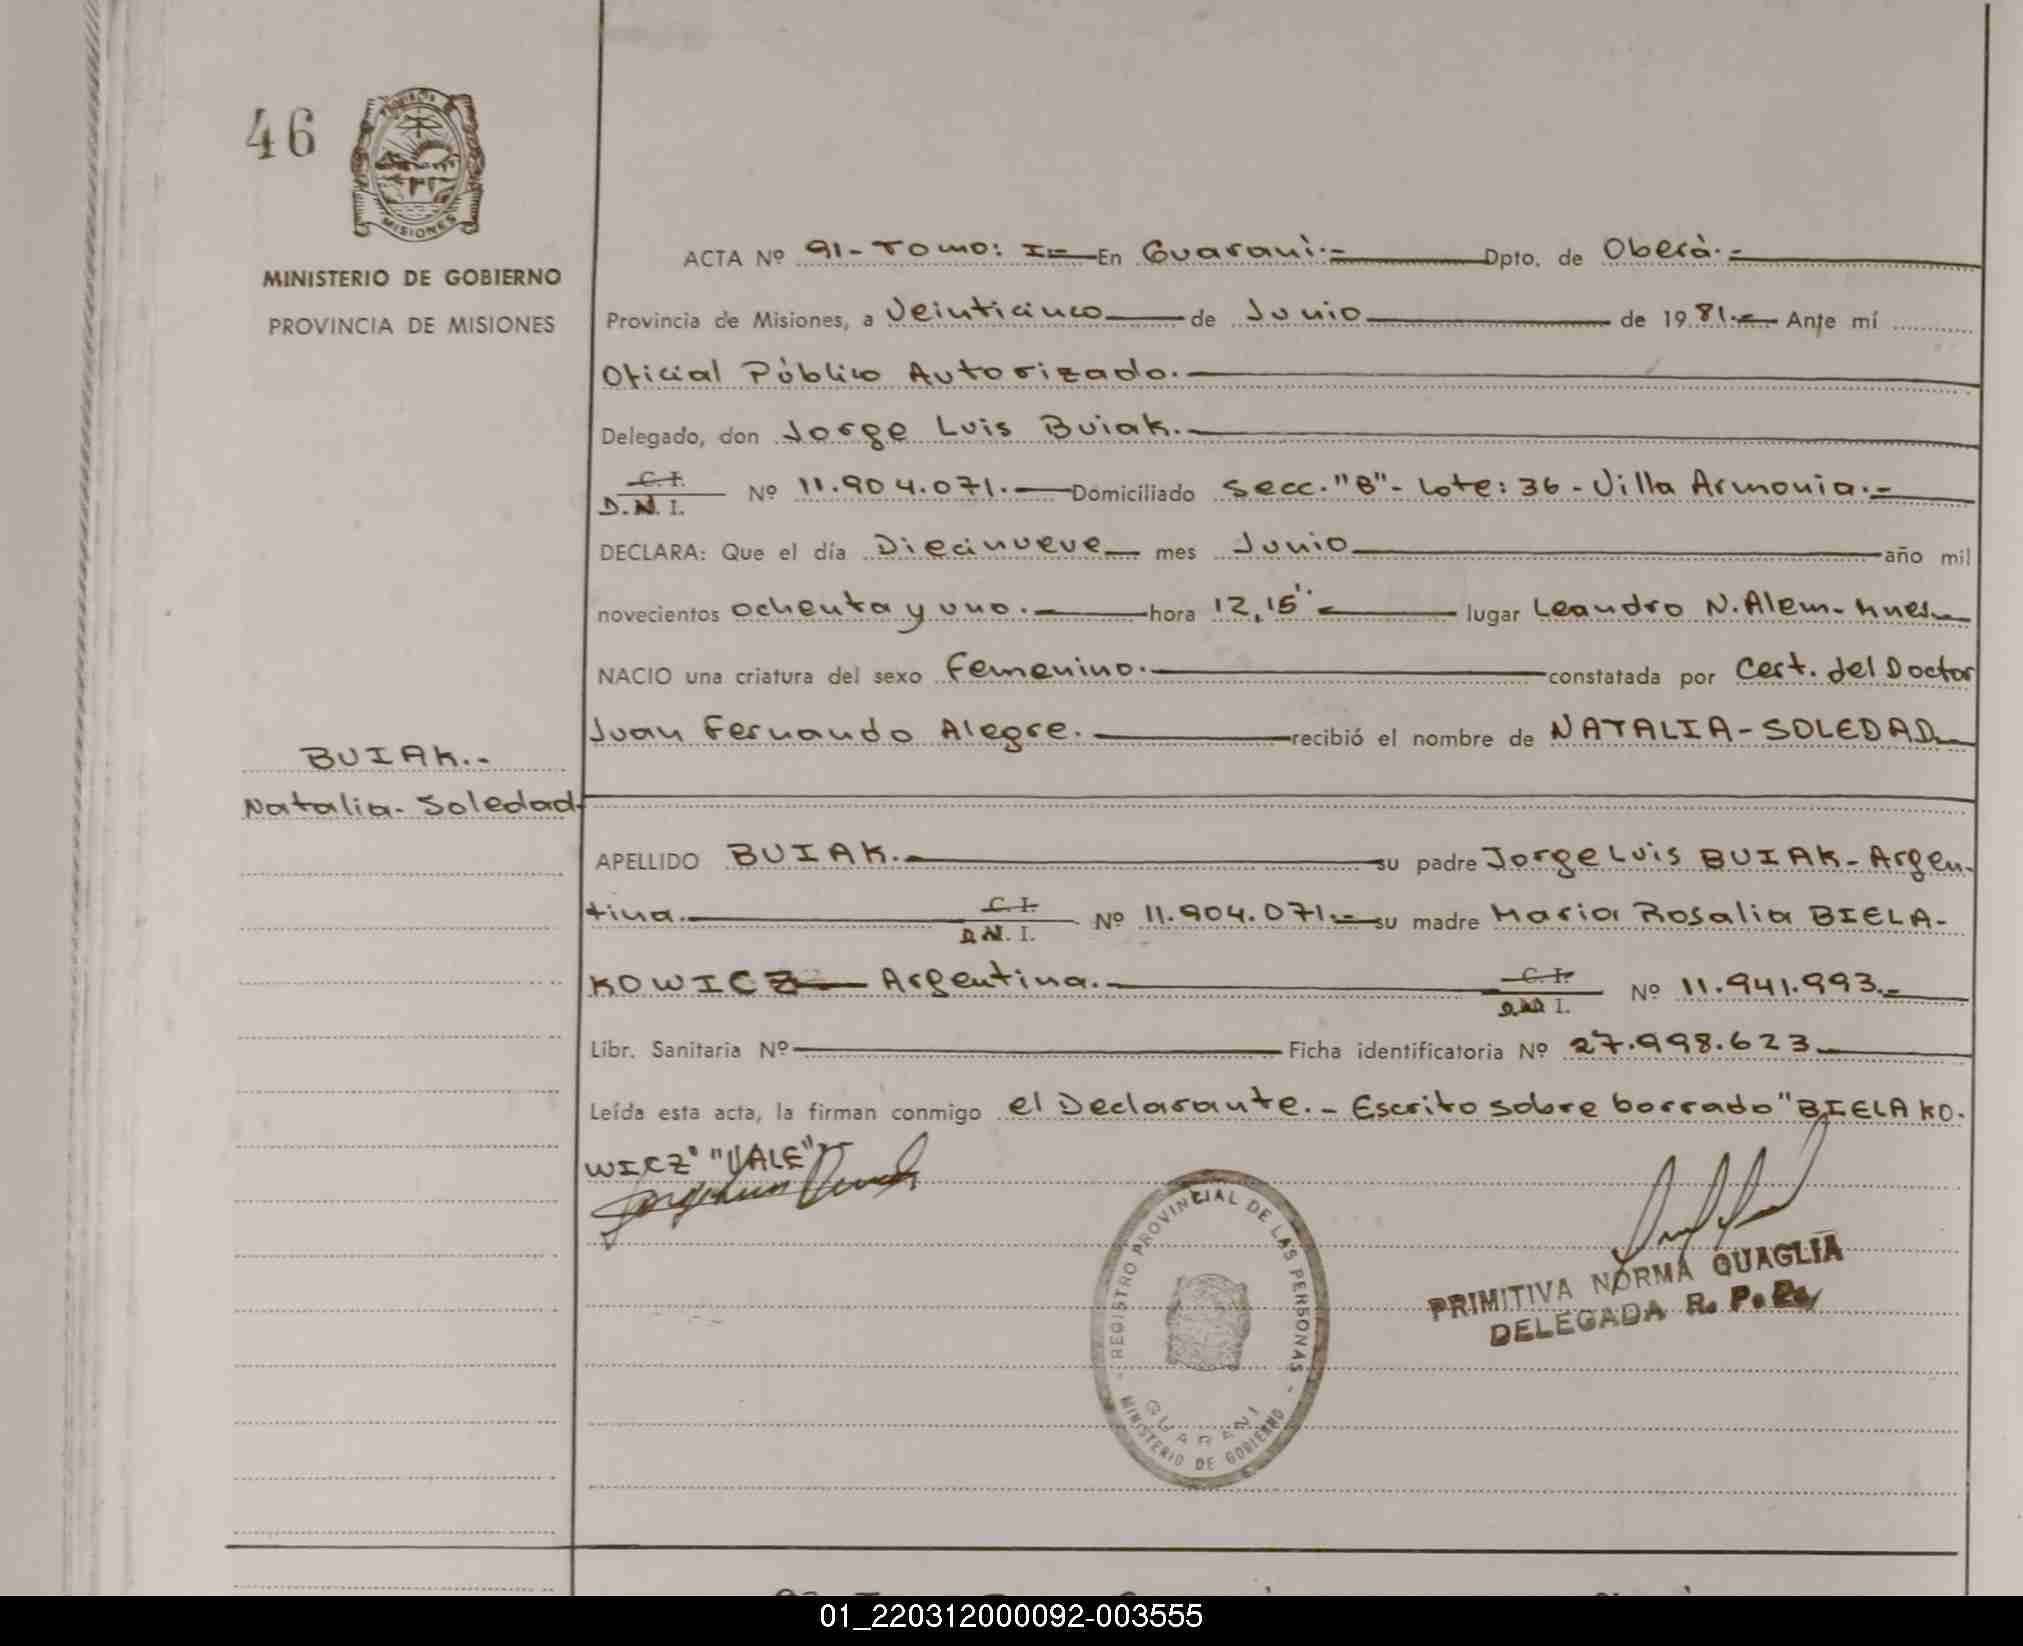 46
PROVINCIA DE
MISIONES
MINISTERIO DE GOBIERNO
PROVINCIA DE MISIONES
BUIAK.-
Natalia-Soledad-
ACTA Nº 91- Tomo: I- En Guaraní.- Dpto. de Oberá.-
Provincia de Misiones, a Veinticinco de Junio de 1981.- Ante mí
Oficial Público Autorizado.
Delegado, don Jorge Luis Buiak.
C. I.
D.N. I. Nº 11.904.071. Domiciliado Secc. "B"- Lote: 36 - Villa Armonia.-
DECLARA: Que el día Diecinueve mes Junio año mil
novecientos ochenta y uno. hora 12,15'. lugar Leandro N. Alem-
NACIO una criatura del sexo Femenino. constatada por Cert. del Doctor
Juan Fernando Alegre. recibió el nombre de NATALIA-SOLEDAD
APELLIDO BUIAK. su padre Jorge Luis BUIAK- Argen-
tina. C. I.
D.N. I. Nº 11.904.071.- su madre Maria Rosalia BIELA-
KOWICZ Argentina. C. I.
D.N. I. Nº 11.941.993.-
Libr. Sanitaria Nº Ficha identificatoria Nº 27.998.623
Leída esta acta, la firman conmigo el Declarante.- Escrito sobre borrado "BIELAKO-
WICZ" "VALE"
REGISTRO PROVINCIAL DE LAS PERSONAS
GUARANI
MINISTERIO DE GOBIERNO
PRIMITIVA NORMA QUAGLIA
DELEGADA R. P. P.
01_220312000092-003555